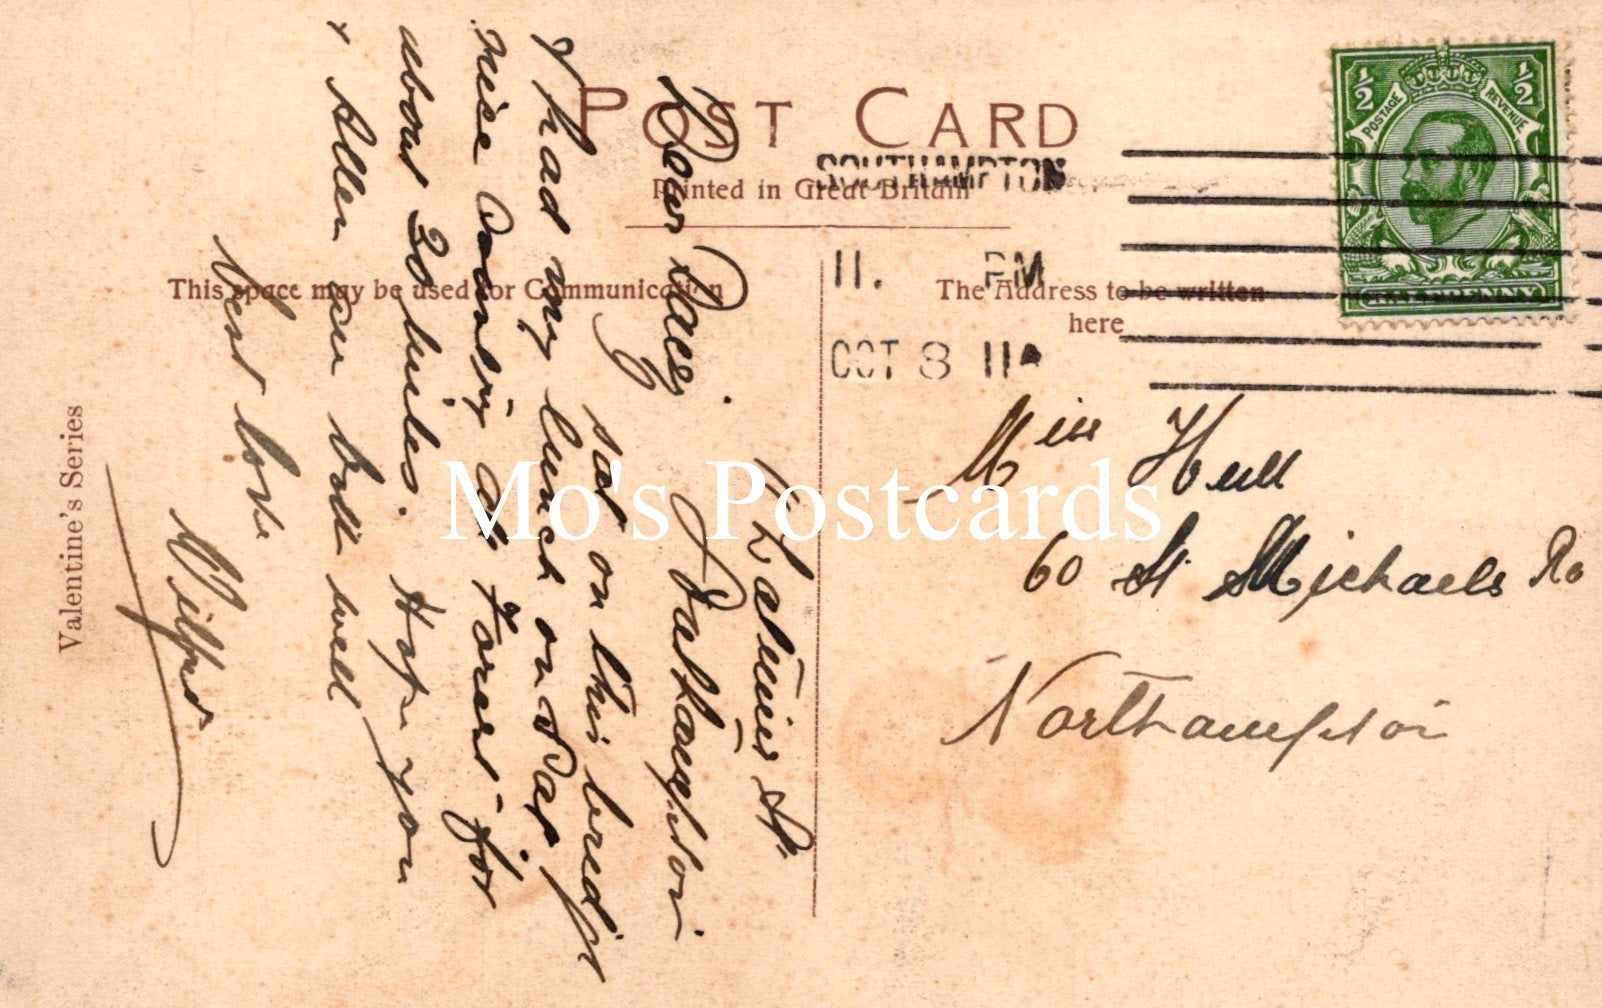 POST CARD
Printed in Great Britain
This space may be used for Communication
The Address to be written
here
SOUTHAMPTON
11. PM
OCT 8 11
POSTAGE REVENUE
½ ½
HALFPENNY
Valentine's Series
Mo's Postcards
11 Latimer St
Southampton
Dear Daisy
Sat on this bridge
& had my lunch on Sat.
nice Country as Forest for
about 30 miles. Hope you
& Allen are both well
best love
Wilfred
Miss Hull
60 St Michaels Ro
Northampton